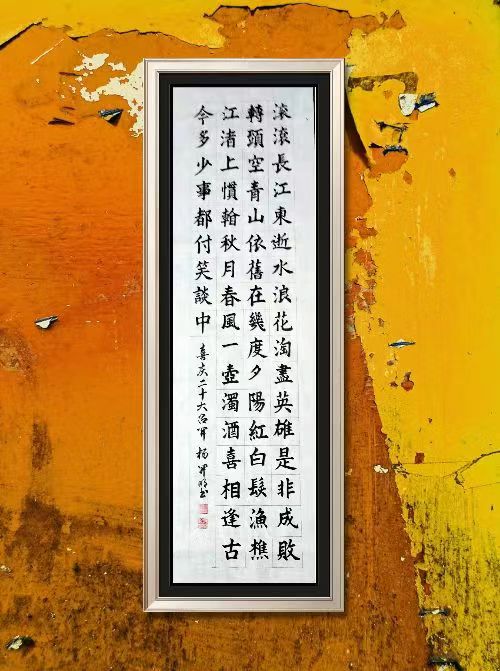 滚滚長江東逝水浪花淘盡英雄是非成敗
轉頭空青山依舊在幾度夕陽紅白髮漁樵
江渚上慣翰秋月春風一壺濁酒喜相逢古
今多少事都付笑談中
喜庆二十大召开 杨书